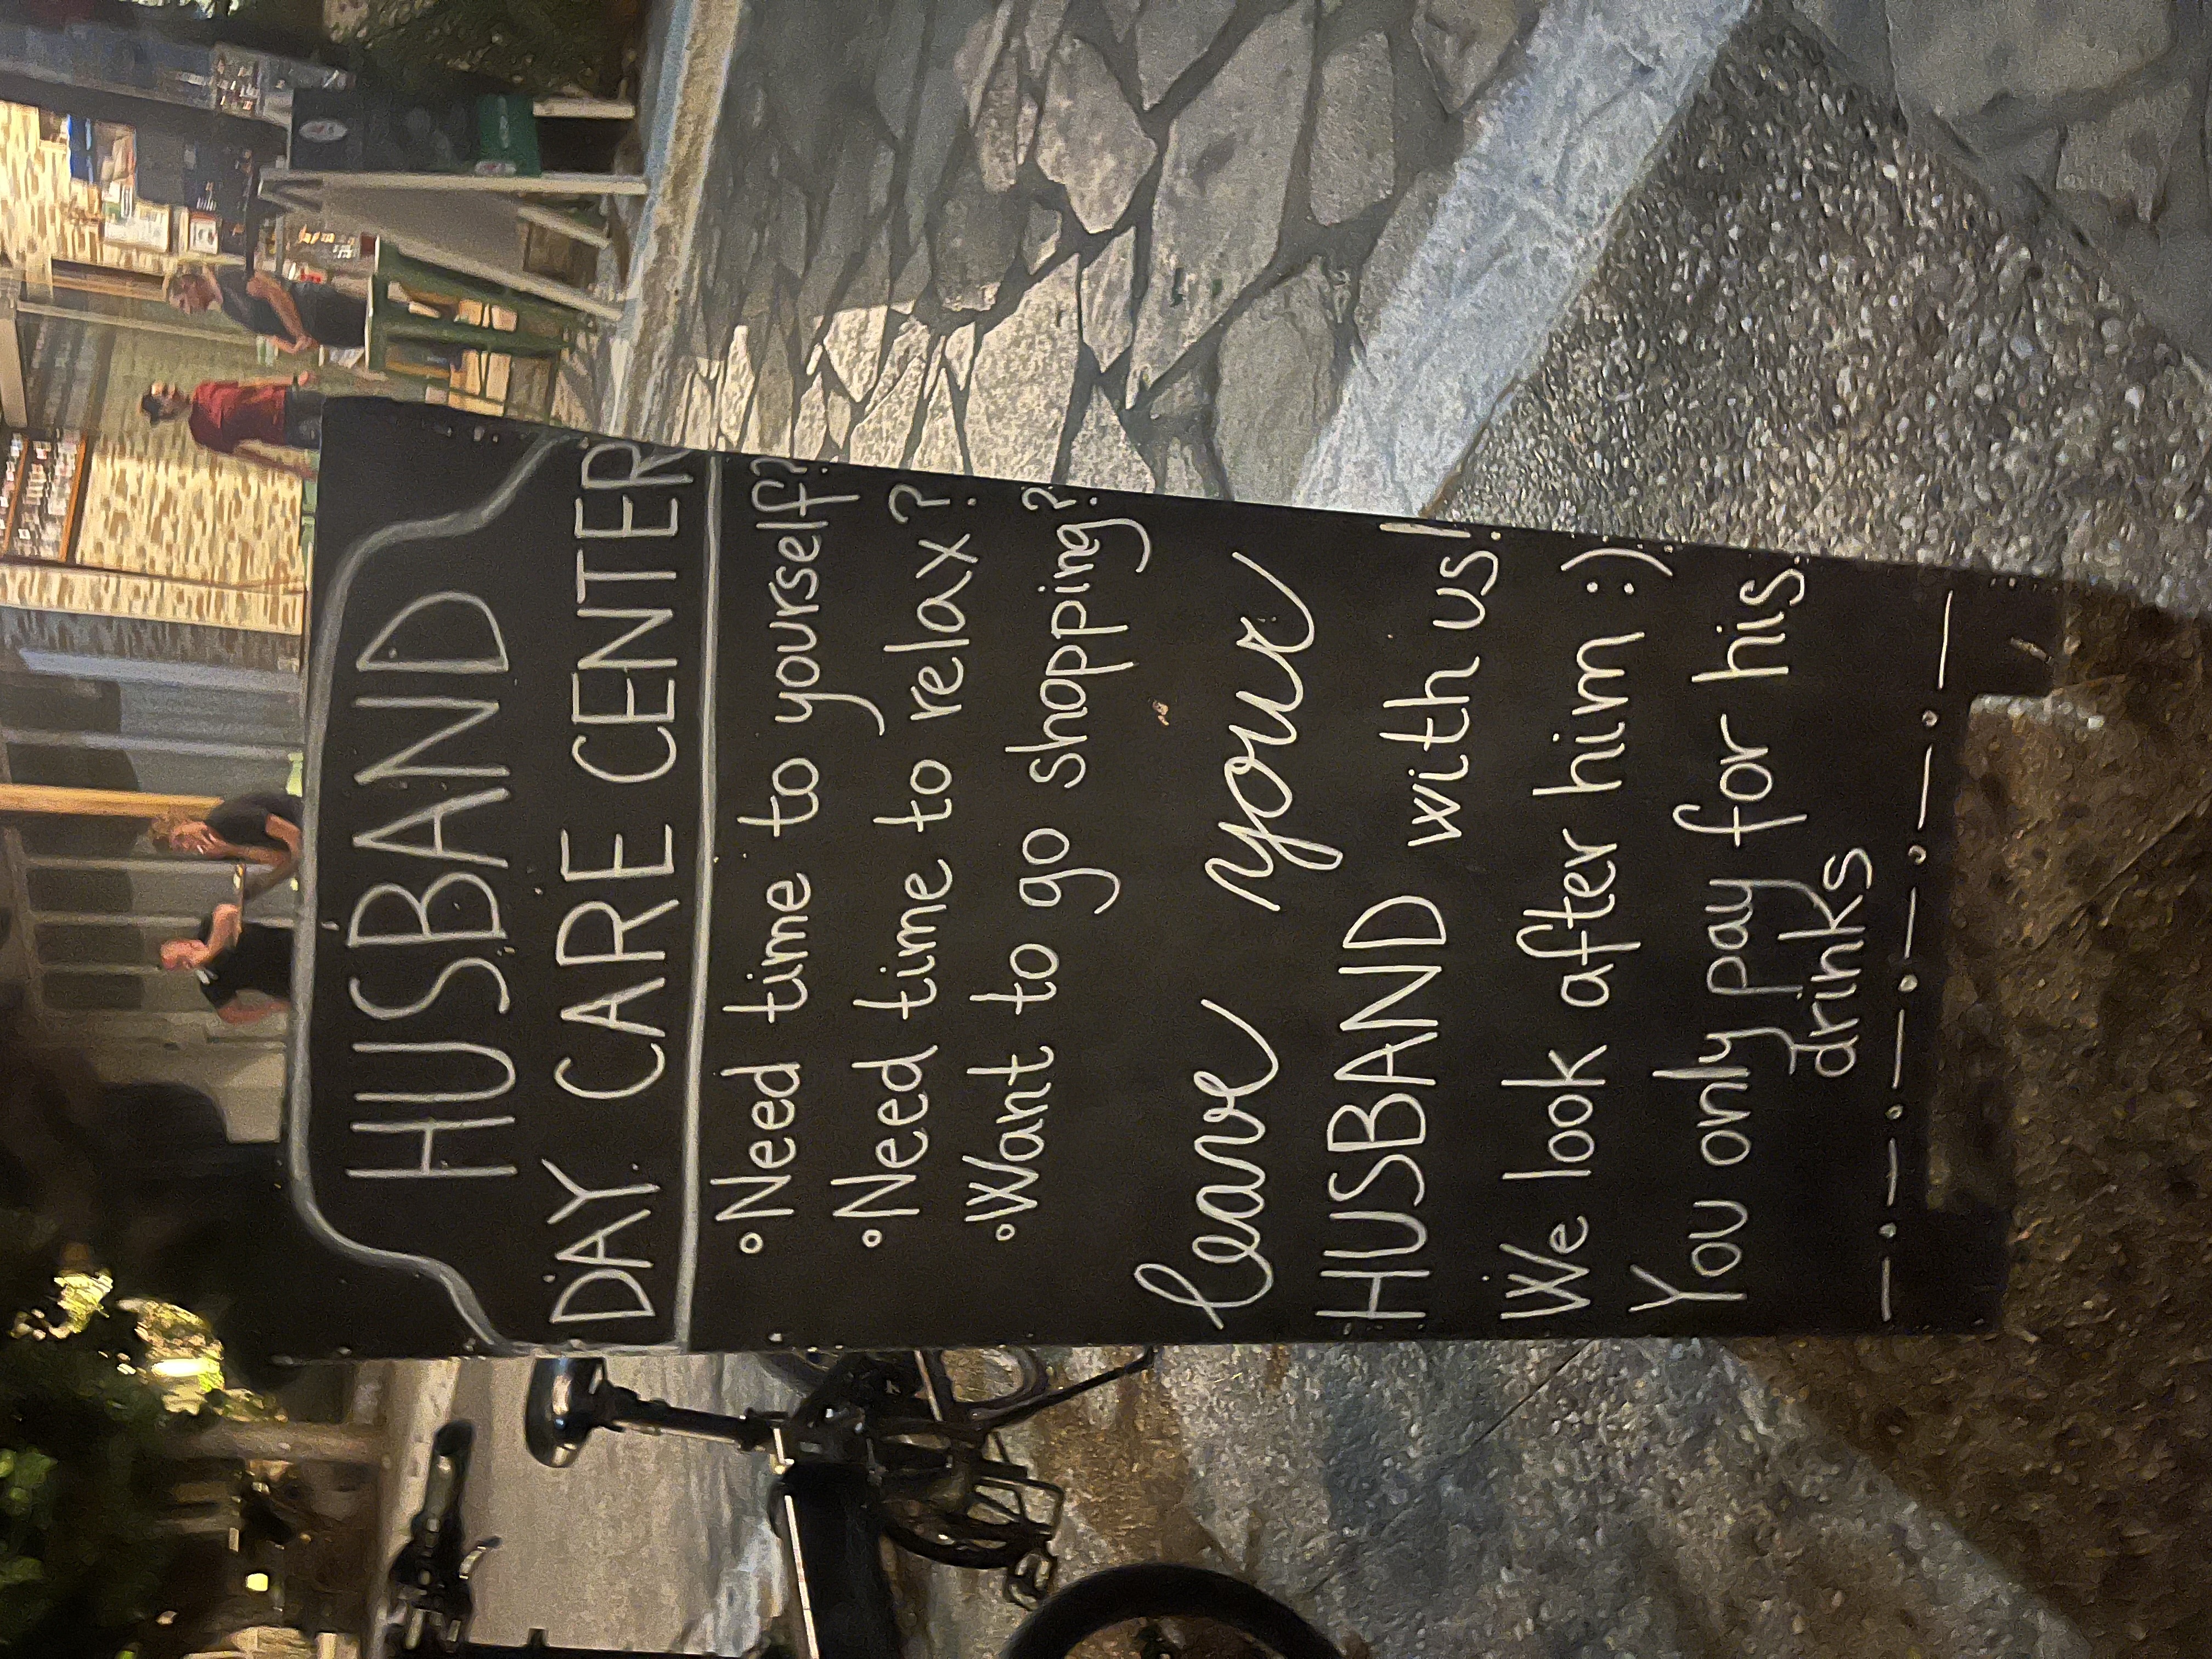 HUSBAND
DAY CARE CENTER
°Need time to yourself?
°Need time to relax?
°Want to go shopping?
leave your
HUSBAND with us!
We look after him :)
You only pay for his
drinks